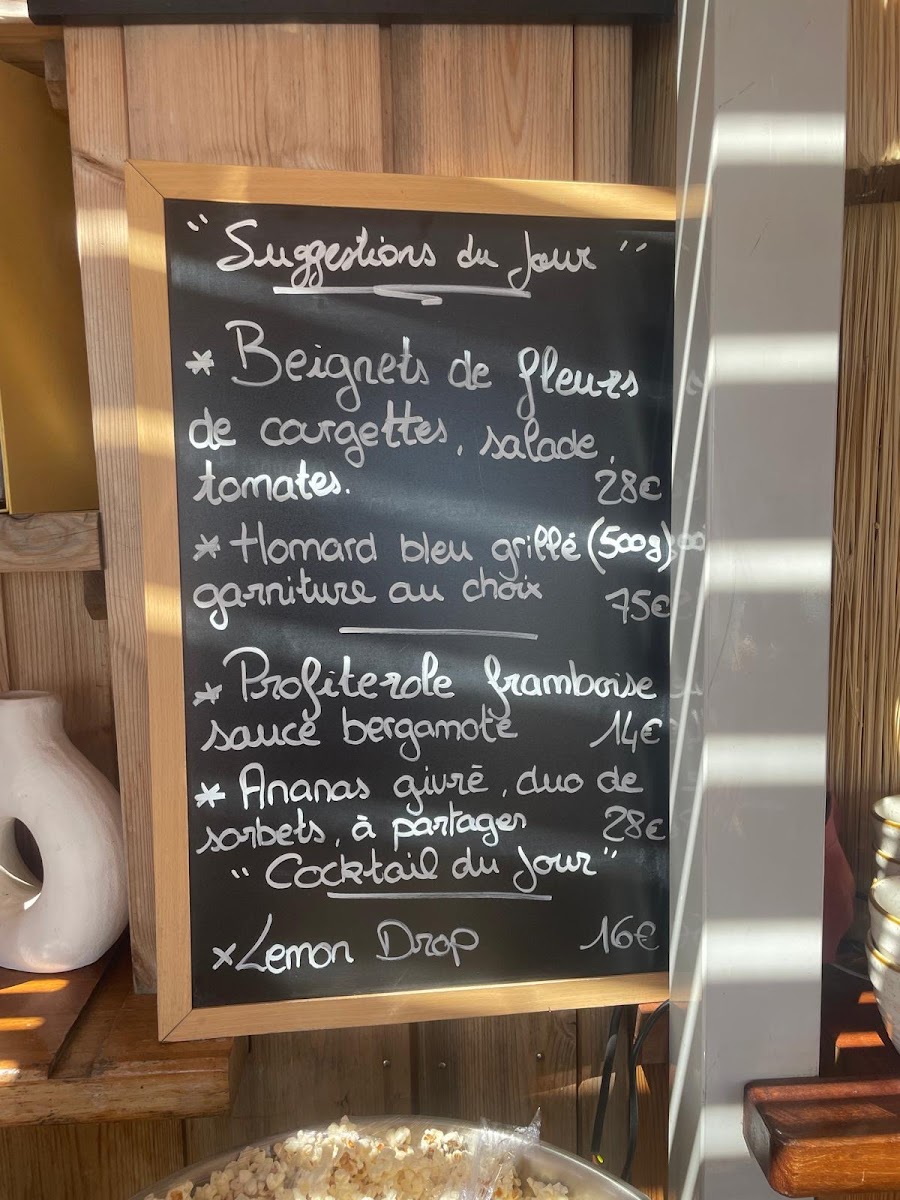 "Suggestions du Jour"
* Beignets de fleurs
de courgettes, salade,
tomates. 28€
* Homard bleu grillé (500g)
garniture au choix 75€
* Profiterole framboise
sauce bergamote 14€
* Ananas givré, duo de
sorbets, à partager 28€
"Cocktail du Jour"
x Lemon Drop 16€